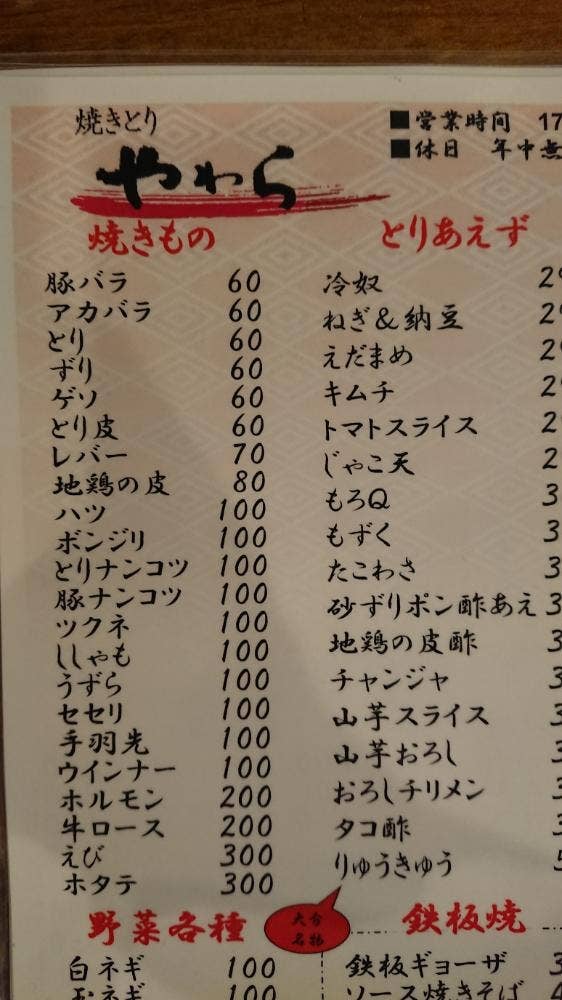 焼きとり
やわら
■営業時間 17
■休日 年中無
焼きもの
豚バラ 60
アカバラ 60
とり 60
ずり 60
ゲソ 60
とり皮 60
レバー 70
地鶏の皮 80
ハツ 100
ボンジリ 100
とりナンコツ 100
豚ナンコツ 100
ツクネ 100
ししゃも 100
うずら 100
セセリ 100
手羽先 100
ウインナー 100
ホルモン 200
牛ロース 200
えび 300
ホタテ 300
野菜各種
白ネギ 100
玉ネギ 100
とりあえず
冷奴 29
ねぎ&納豆 29
えだまめ 29
キムチ 29
トマトスライス 29
じゃこ天 2
もろQ 3
もずく 3
たこわさ 3
砂ずりポン酢あえ 3
地鶏の皮酢 3
チャンジャ 3
山芋スライス 3
山芋おろし 3
おろしチリメン 3
タコ酢 3
りゅうきゅう 5
大分
名物
鉄板焼
鉄板ギョーザ 3
ソース焼きそば 4